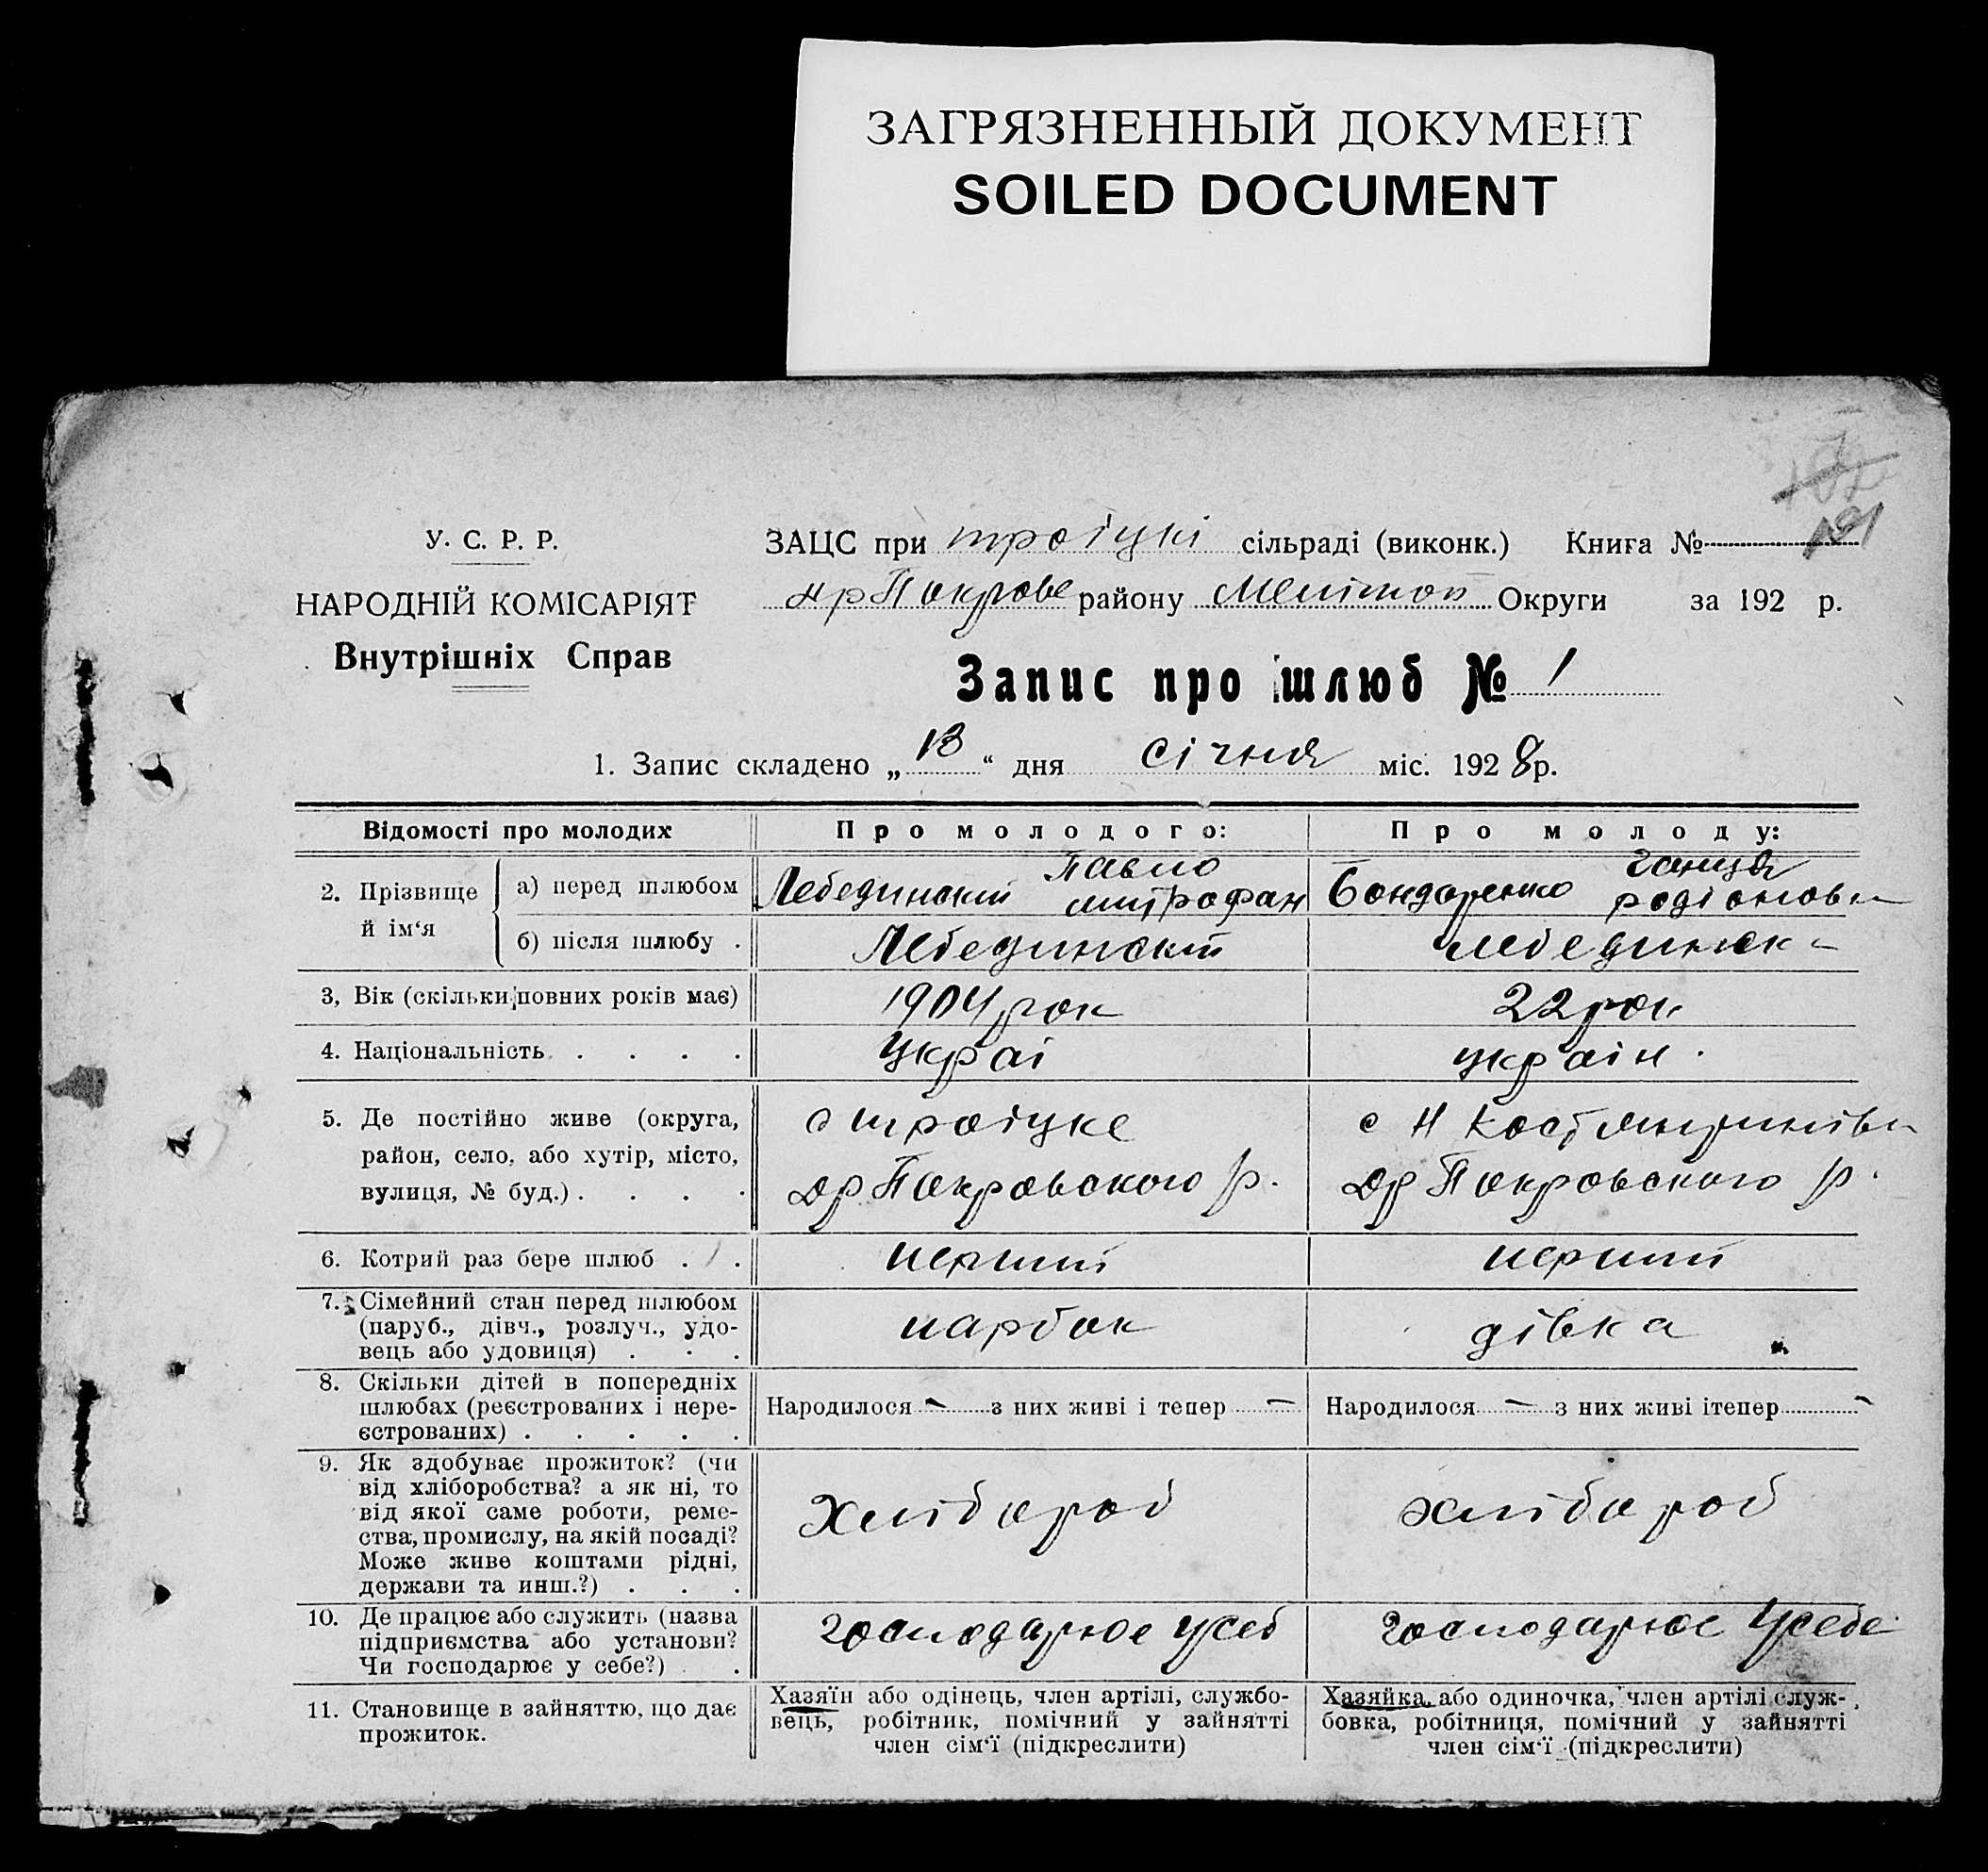 ЗАГРЯЗНЕННЫЙ ДОКУМЕНТ
SOILED DOCUMENT
191
У. С. Р. Р.
НАРОДНІЙ КОМІСАРІЯТ
Внутрішніх Справ
ЗАЦС при троіцкі сільраді (виконк.) Книга №
др Покрове району Мелітоп Округи за 192 р.
Запис про шлюб № 1
1. Запис складено „ 13 “ дня січня міс. 1928 р.
Відомості про молодих
Про молодого:
Про молоду:
2. Прізвище й ім‘я
а) перед шлюбом
Лебединскій Павло митрофан
Бондаренко ганця родіонов
б) після шлюбу .
Лебединскій
лебединск
3, Вік (скільки повних років має)
1904 рок
22 рок
4. Національність . . . .
Украі
украін.
5. Де постійно живе (округа,
район, село, або хутір, місто,
вулиця, № буд.) . . . .
с троіцке
др Покровского р.
с Н Костянтинівк
др Покровского р.
6. Котрий раз бере шлюб . .
перший
перший
7. Сімейний стан перед шлюбом
(паруб., дівч., розлуч., удо-
вець або удовиця) . . .
парбок
дівка
8. Скільки дітей в попередніх
шлюбах (реєстрованих і нере-
єстрованих) . . . . .
Народилося — з них живі і тепер —
Народилося — з них живі ітепер —
9. Як здобуває прожиток? (чи
від хліборобства? а як ні, то
від якої саме роботи, реме-
ства, промислу, на якій посаді?
Може живе коштами рідні,
держави та инш.?) . . .
Хлібороб
хлібороб
10. Де працює або служить (назва
підприємства або установи?
Чи господарює у себе?) . .
господарює усеб
господарює усебе
11. Становище в зайняттю, що дає
прожиток.
Хазяїн або одінець, член артілі, службо-
вець, робітник, помічний у зайнятті
член сім‘ї (підкреслити)
Хазяйка або одиночка, член артілі служ-
бовка, робітниця, помічний у зайнятті
член сім‘ї (підкреслити)